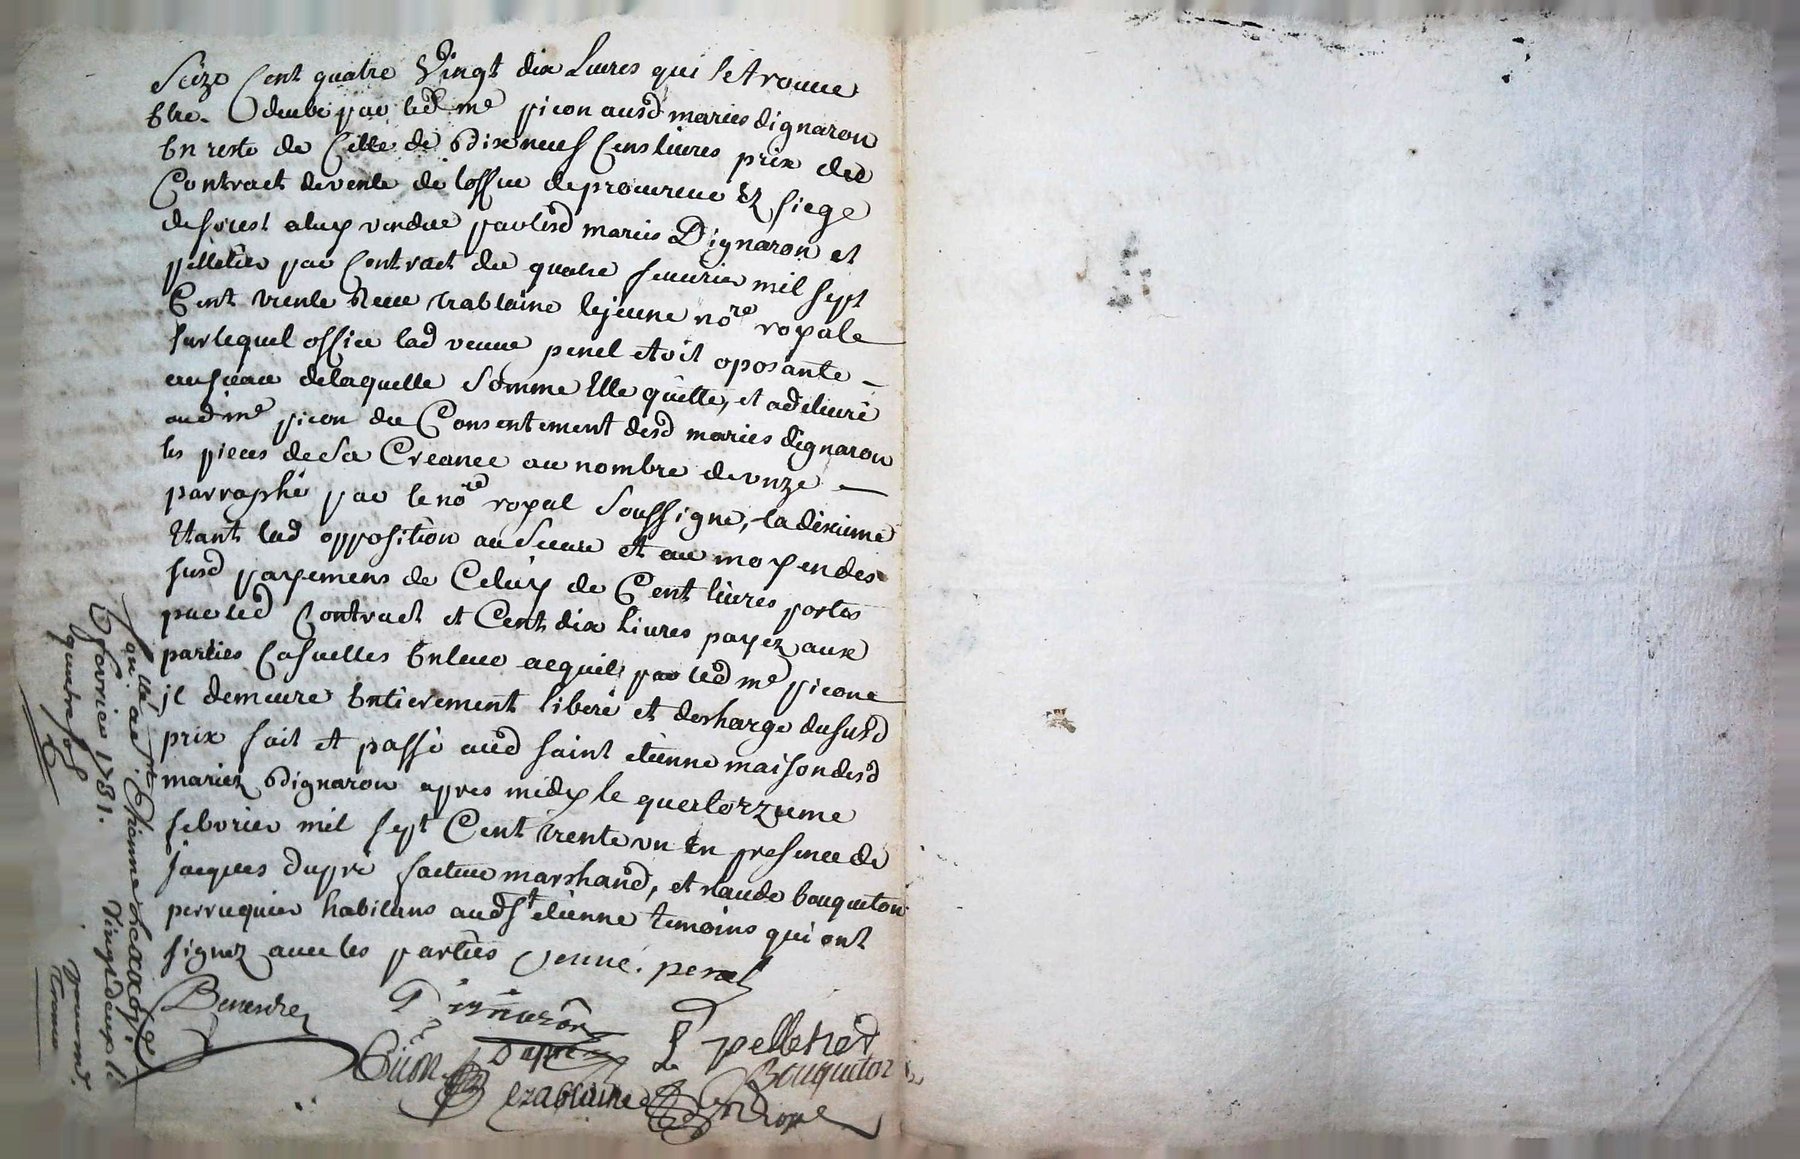 Seize Cent quatre Vingt dix Livres qui se trouve
Etre deube par led me picon ausd maries dignaron
En reste de Celle de dixneuf Cens livres prix du
Contract de vente de loffice de procureur Ez siege
de forest a luy vendue par lesd maries Dignaron et
pelletier par Contract du quatre feuvrier mil sept
Cent trente Receu trablaine lejeune nore royale
sur lequel office lad veuve penel etoit oposante
au sceau de laquelle Somme Elle quitte, et a delivré
aud me picon du Consentement desd maries dignaron
les pieces de sa Creance au nombre de unze
parraphé par le nore royal Soussigne, la dixieme
Etant lad opposition au Sceau et au moyen des
susd payemens de Celuy de Cent livres portes
par led Contract et Cent dix livres payez aux
parties Casuelles En leur acquit par led me picone
il demeure Entierement libere et descharge du susd
prix fait et passé aud saint etienne maison desd
mariez dignaron apres midy le quatorzieme
febvrier mil sept Cent trente un En presence de
jacques dupré facteur marchand, et claude bouqueton
perruquier habitans aud st etienne temoins qui ont
signez avec les parties veuve penel
Dignaron
pelletier
Dupré
Bouqueton
trablaine
Con.llé a St Etienne le
fevrier 1731.
Vingt deux
quatre sols